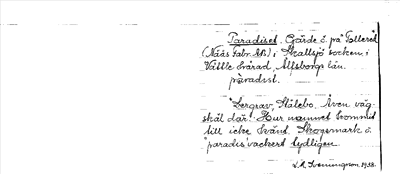 Paradiset. Gärde ö. på Tollered
(Nääs Fabr. AB) i Skallsjö socken i
Vättle härad, Älfsborgs län.
paradist.
Lergrav, Hålebo. Även väg-
skäl där! Hur namnet kommit
till icke känt. Skogsmark o.
"paradis" vackert tydligen.
1938.